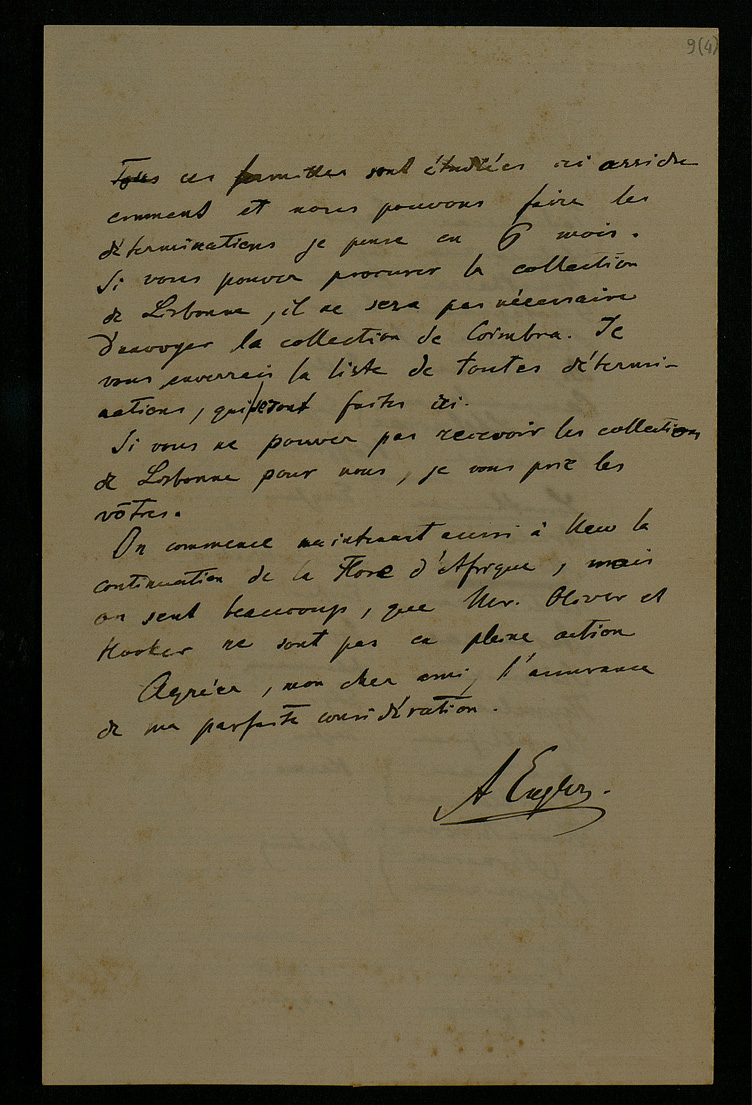 9(4)
Tous ces familles sont étudiées ici assidu
comment et nous pouvons faire les
déterminations je pense en 6 mois.
Si vous pouvez procurer la collection
de Lisbonne, il ne sera pas nécessaire
d'envoyer la collection de Coimbra. Je
vous enverrais la liste de toutes détermi-
nations, qui seront faites ici.
Si vous ne pouvez pas recevoir les collections
de Lisbonne pour nous, je vous prie les
vôtres.
On commence maintenant aussi à Kew la
continuation de la Flore d'Afrique, mais
on sent beaucoup, que Mr. Oliver et
Hooker ne sont pas en pleine action
Agréez, mon cher ami, l'assurance
de ma parfaite considération.
A Engler.